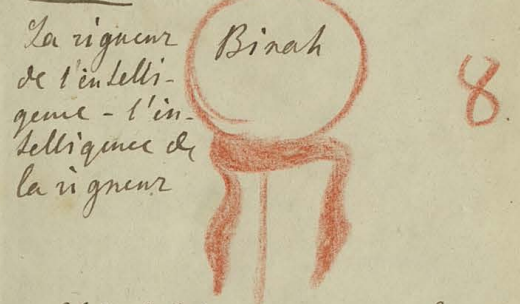 La rigueur
de l'intelli-
gence - l'in-
telligence de
la rigueur
Binah
8